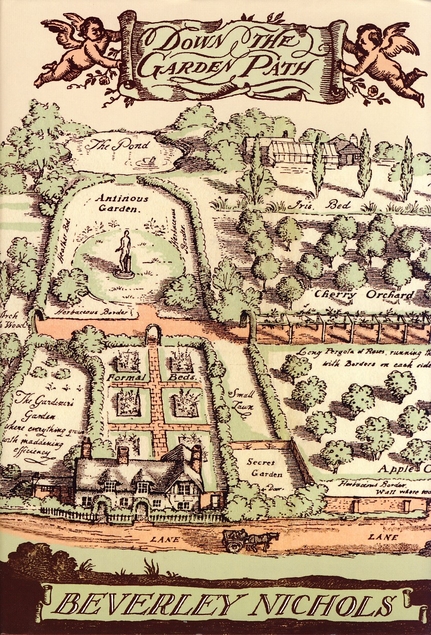 DOWN THE
GARDEN PATH
The Pond
Antinous
Garden.
Iris Bed
Cherry Orchard
Herbaceous Borders
Wood
Long Pergola of Roses, running th
with Borders on each side
Formal Roses
The Gardener's
Garden
where everything grows
with maddening
efficiency
Small
Lawn
Secret
Garden
Door
Apple O
Herbaceous Border
Wall where
LANE
LANE
BEVERLEY NICHOLS